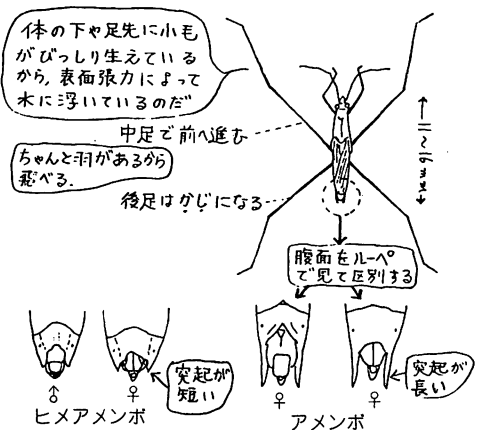 体の下や足先に小毛
がびっしり生えている
から,表面張力によって
水に浮いているのだ
中足で前へ進む
ちゃんと羽があるから
飛べる.
後足はかじになる
腹面をルーペ
で見て区別する
突起が
短い
突起が
長い
♂
♀
♀
♀
ヒメアメンボ
アメンボ